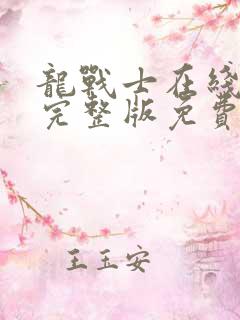 龍戰士在綫
完整版免費
王玉安